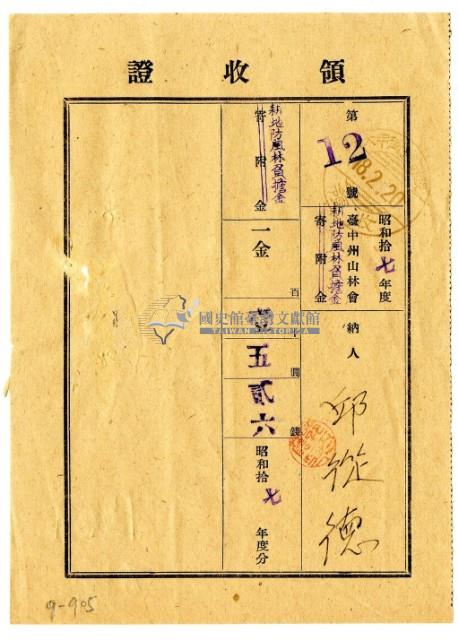 領收證
第12號
18.2.20
昭和拾七年度
臺中州山林會
耕地防風林負擔金
寄附金
納人
邱從德
耕地防風林負擔金
寄附金
一金
百
壹
十
五
圓
貳
六
錢
昭和拾七年度分
國史館臺灣文獻館
TAIWAN HISTORICA
9-905